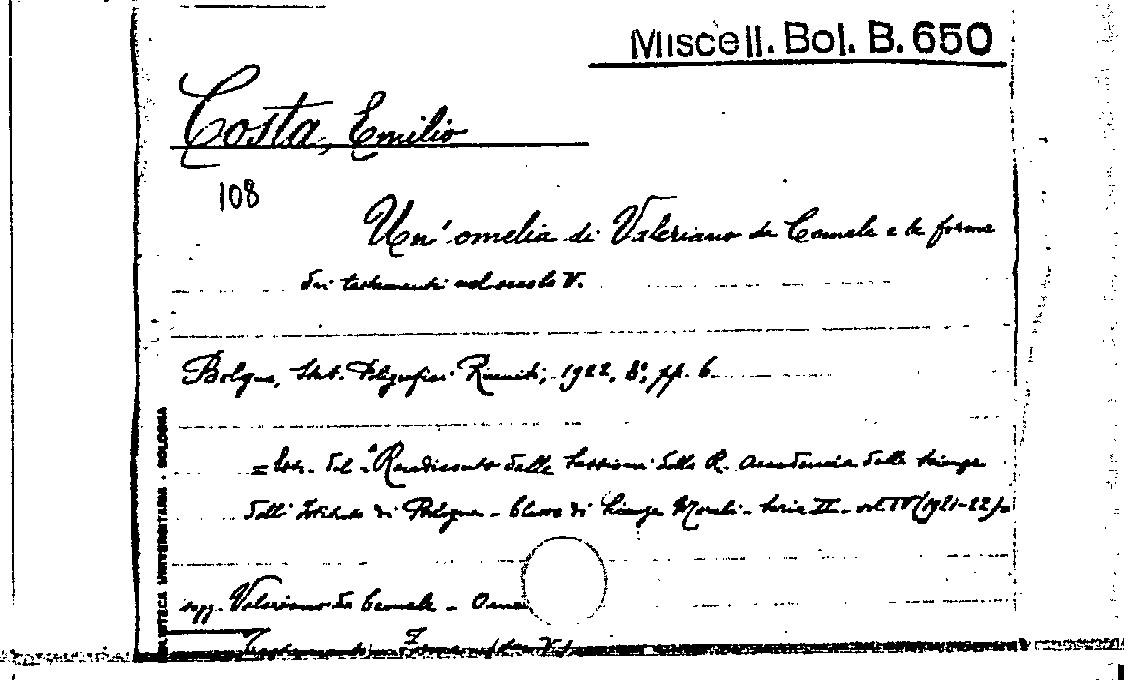 Miscell. Bol. B. 650
Costa, Emilio
108
Un' omelia di Valeriano da Cemele e le forme
dei testamenti nel secolo V.
Bologna, Stab. Poligrafici Riuniti, 1922, 8°, pp. 6
= Estr. dal "Rendiconto delle Sessioni della R. Accademia delle Scienze
dell' Istituto di Bologna - Classe di Scienze Morali - Serie II - vol. VI (1921-22) =
BIBLIOTECA UNIVERSITARIA - BOLOGNA
sogg. Valeriano da Cemele -